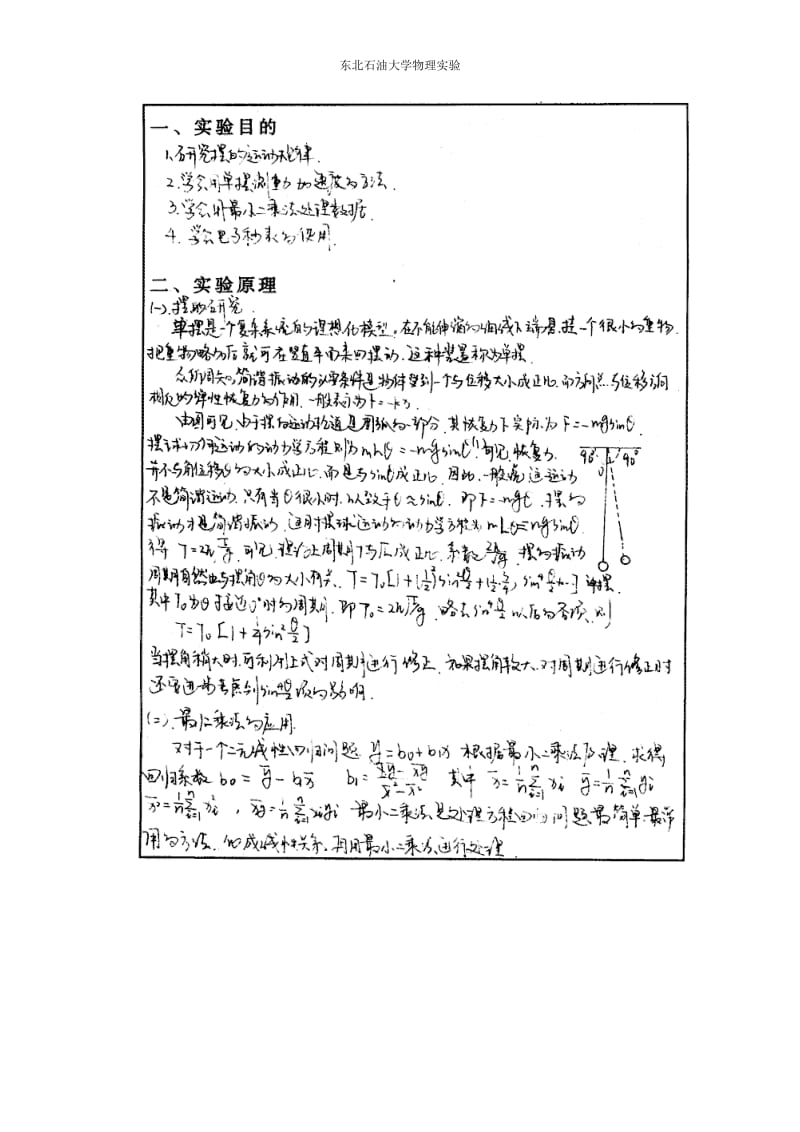 东北石油大学物理实验
一、实验目的
1.研究摆的运动规律.
2.学会用单摆测重力加速度的方法.
3.学会用最小二乘法处理数据.
4.学会电子秒表的使用.
二、实验原理
(一).摆的研究.
单摆是一个复杂系统的理想化模型,在不能伸缩的细线下端悬挂一个很小的重物,
把重物略后就可在竖直平面来回摆动.这种装置称为单摆.
众所周知,简谐振动的必要条件是物体受到一个与位移大小成正比,而方向与位移方向
相反的弹性恢复力的作用.一般表示为F=-kx
由图可见,由于摆的运动轨道是圆弧的一部分,其恢复力F实际为F=-mgsinθ.
摆球切线运动的动力学方程则为mLθ=-mgsinθ,可见,恢复力
并不与角位移θ的大小成正比,而是与sinθ成正比.因此,一般说这运动
90° 90°
θ
不是简谐运动,只有当θ很小时,以致于θ≈sinθ.即F=-mgθ,摆的
振动才是简谐振动,这时摆球运动的动力学方程为mLθ=-mgsinθ.
得 可见,理论上周期T与 成正比,系数 摆的振动
周期自然也与摆角θ的大小有关,T=T₀[1+(½)²sin²
单摆
其中T₀为θ接近0°时的周期,即T₀=2π 略去 以后的各项,则
T=T₀[1+¼sin²θ/2]
当摆角稍大时,可利用上式对周期进行修正.如果摆角较大,对周期进行修正时
还要进一步考虑到 项的影响.
(二).最小二乘法的应用.
对于一个二元线性回归问题 ȳ=b₀+b₁x 根据最小二乘法原理,求得
回归系数 b₀=ȳ-b₁x̄ b₁= 其中 x̄=1/n∑xᵢ ȳ=1/n∑yᵢ
=1/n∑ , =1/n∑xᵢyᵢ 最小二乘法是处理方程回归问题最简单最常
用的方法. 成线性关系,利用最小二乘法进行处理